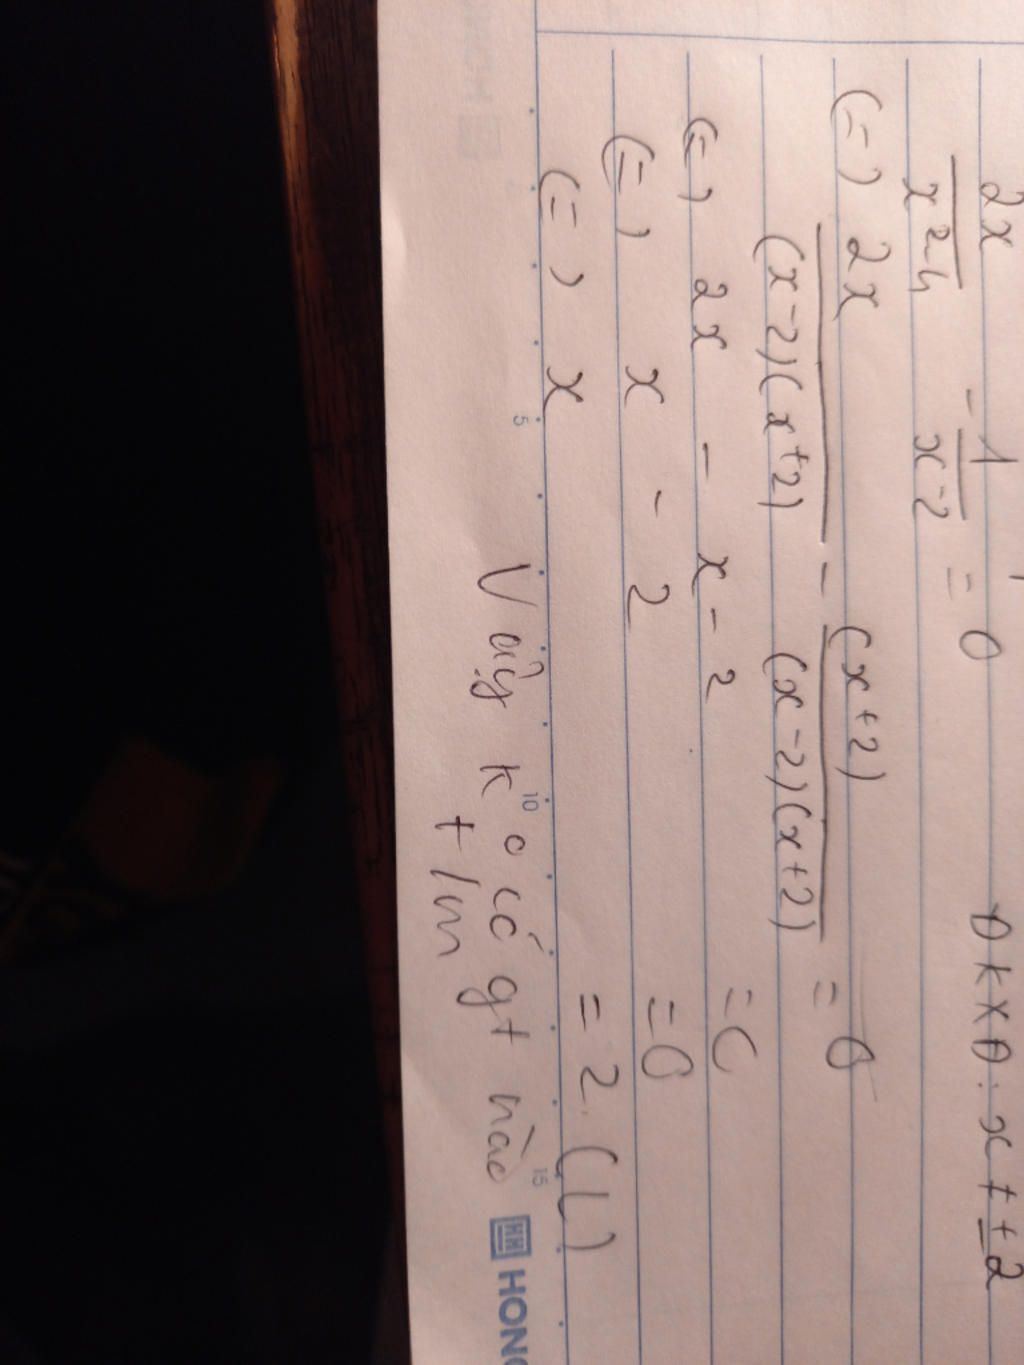 2x/(x²-4) - 1/(x-2) = 0 ĐKXĐ: x ≠ ±2
(=) 2x/((x-2)(x+2)) - (x+2)/((x-2)(x+2)) = 0
(=) 2x - x - 2 = 0
(=) x - 2 = 0
(=) x = 2 (L)
Vậy k° có gt nào
t/m
5 10 15 HONG